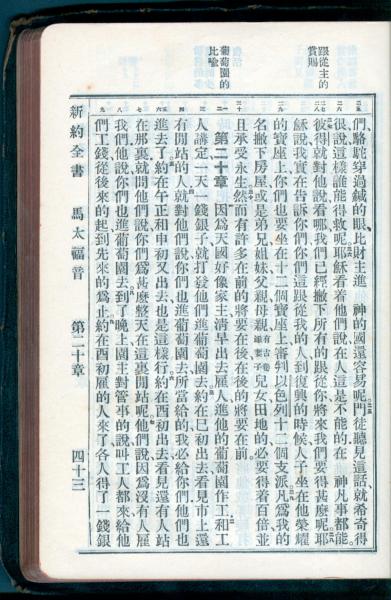 跟從主的
賞賜
葡萄園的
比喻
們駱駝穿過鍼的眼比財主進　神的國還容易呢門徒聽見這話就希奇得
很說這樣誰能得救呢耶穌看着他們說在人這是不能的在　神凡事都能
彼得就對他說看哪我們已經撇下所有的跟從你將來我們要得甚麼呢耶
穌說我實在告訴你們你們這跟從我的人到復興的時候人子坐在他榮耀
的寶座上你們也要坐在十二個寶座上審判以色列十二個支派凡爲我的
名撇下房屋或是弟兄姐妹父親母親有古卷添妻子兒女田地的必要得着百倍並
且承受永生然而有許多在前的將要在後在後的將要在前
第二十章　因爲天國好像家主清早出去雇人進他的葡萄園作工和工
人講定一天一錢銀子就打發他們進葡萄園去約在巳初出去看見市上還
有閒站的人就對他們說你們也進葡萄園去所當給的我必給你們他們也
進去了約在午正和申初又出去也是這樣行約在酉初出去看見還有人站
在那裏就問他們說你們爲甚麼整天在這裏閒站呢他們說因爲沒有人雇
我們他說你們也進葡萄園去到了晚上園主對管事的說叫工人都來給他
們工錢從後來的起到先來的爲止約在酉初雇的人來了各人得了一錢銀
新約全書　馬太福音　第二十章　四十三